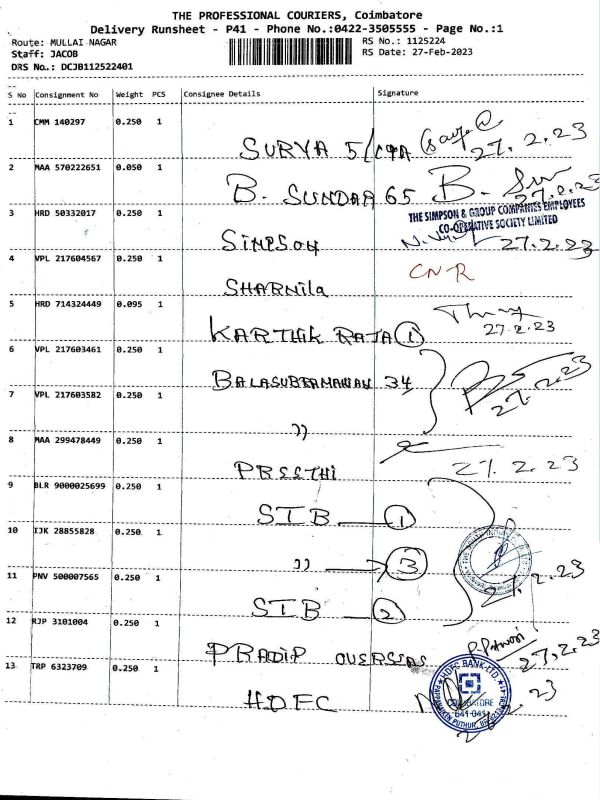 THE PROFESSIONAL COURIERS, Coimbatore
Delivery Runsheet - P41 - Phone No.:0422-3505555 - Page No.:1
Route: MULLAI NAGAR
RS No.: 1125224
Staff: JACOB
RS Date: 27-Feb-2023
DRS No.: DCJB112522401
S No Consignment No Weight PCS Consignee Details Signature
1 CMM 140297 0.250 1
SURYA 5/
27.2.23
2 MAA 570222651 0.050 1
B. SUNDAR 65 B.
27.2.23
3 HRD 50332017 0.250 1
THE SIMPSON & GROUP COMPANIES EMPLOYEES
CO-OPERATIVE SOCIETY LIMITED
SIMPSON 27.2.23
4 VPL 217604567 0.250 1
CNR
SHARMILA
5 HRD 714324449 0.095 1
KARTHIK RAJA 1 27.2.23
6 VPL 217603461 0.250 1
BALASUBRAMANIAN 34
27.2.23
7 VPL 217603582 0.250 1
"
8 MAA 299478449 0.250 1
PREETHI 27.2.23
9 BLR 9000025699 0.250 1
SIB 1
10 IJK 28855828 0.250 1
" 3
11 PNV 500007565 0.250 1
27.2.23
SIB 2
12 RJP 3101004 0.250 1
PRADIP OVERSEAS 27.2.23
13 TRP 6323709 0.250 1
HDFC
HDFC BANK LTD
COIMBATORE
641-041